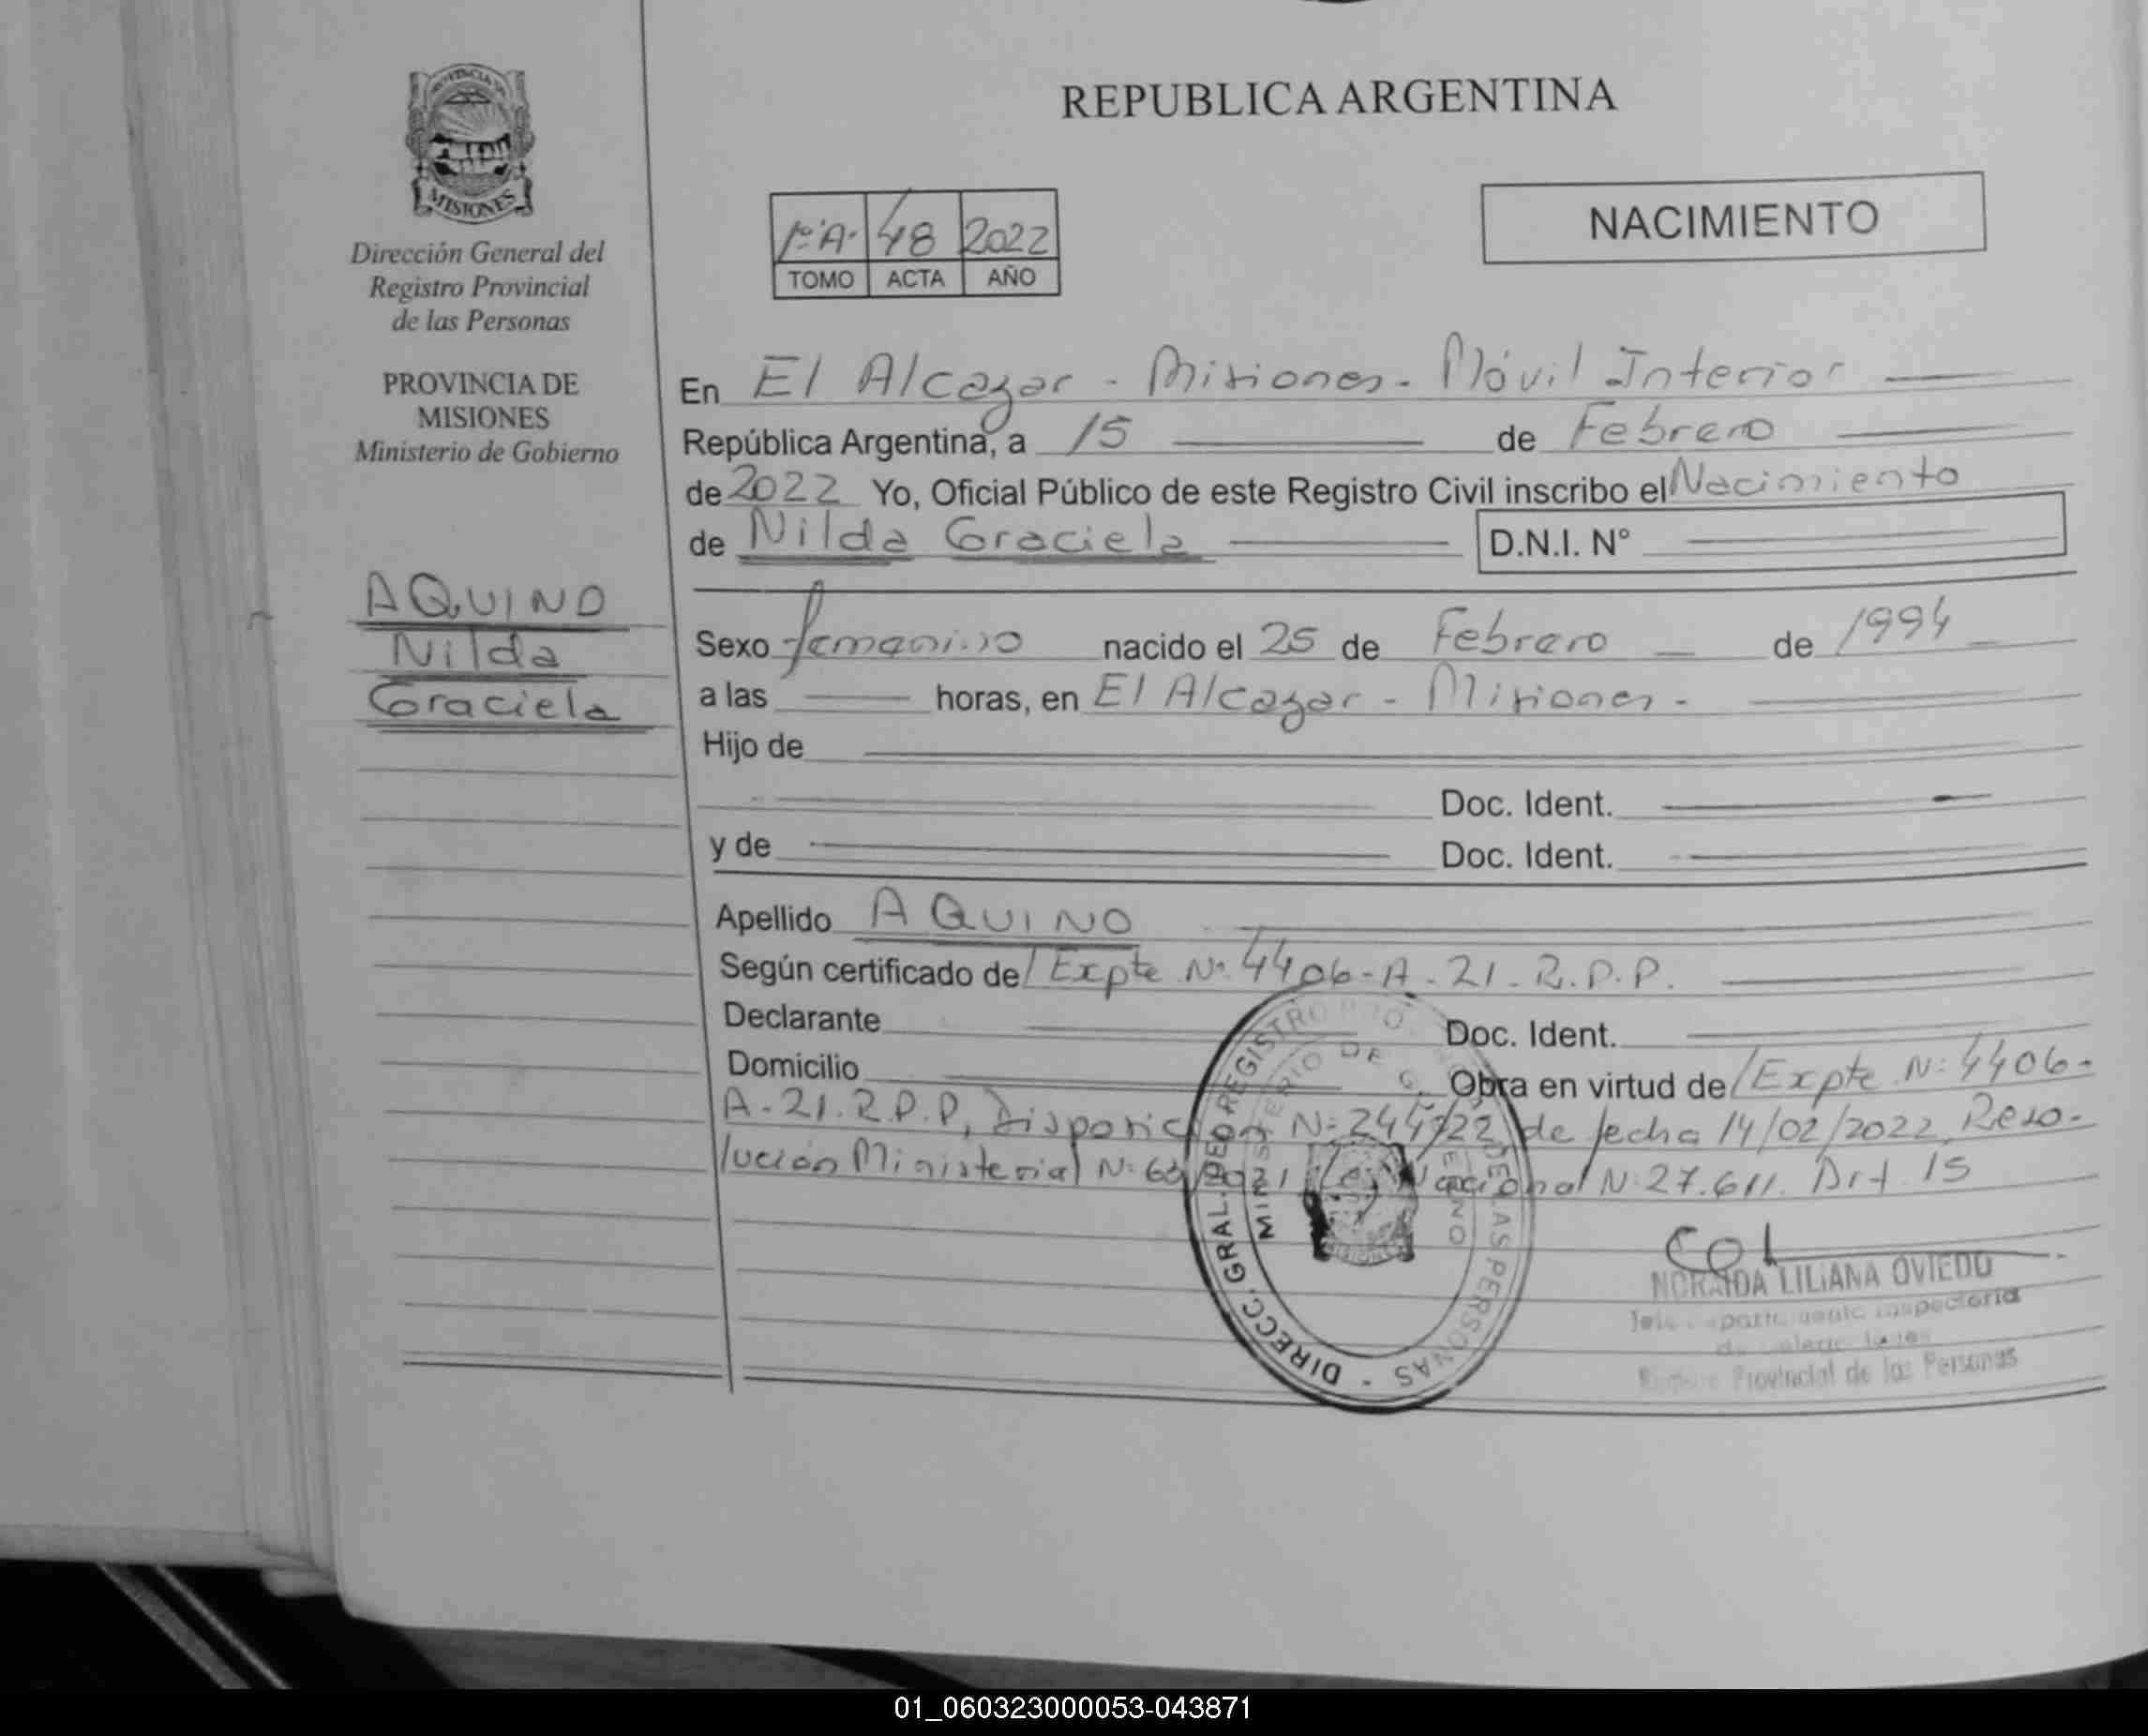 REPUBLICA ARGENTINA
PROVINCIA DE
MISIONES
Dirección General del
Registro Provincial
de las Personas
PROVINCIA DE
MISIONES
Ministerio de Gobierno
AQUINO
Nilda
Graciela
1º"A" 48 2022
TOMO ACTA AÑO
NACIMIENTO
En El Alcazar - Misiones - Móvil Interior
República Argentina, a 15 de Febrero
de 2022 Yo, Oficial Público de este Registro Civil inscribo el Nacimiento
de Nilda Graciela D.N.I. Nº
Sexo femenino nacido el 25 de Febrero de 1994
a las horas, en El Alcazar - Misiones -
Hijo de
Doc. Ident.
y de Doc. Ident.
Apellido AQUINO
Según certificado de/ Expte Nº 4406-A-21-R.P.P.
Declarante Doc. Ident.
Domicilio Obra en virtud de/ Expte Nº 4406-
A-21.R.P.P, Disposición Nº 244/22, de fecha 14/02/2022, Reso-
lución Ministerial Nº Ley Nacional Nº 27.611. Art. 15
DIRECC. GRAL. DEL REGISTRO DE LAS PERSONAS -
MINISTERIO DE GOBIERNO
NORAIDA LILIANA OVIEDO
Inspectoria
Provincial de las Personas
01_060323000053-043871